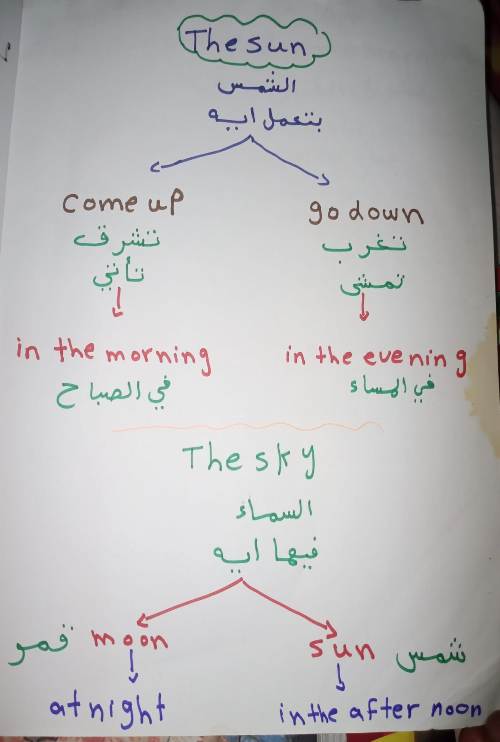 The sun
الشمس
بتعمل ايه
come up
go down
تشرق
تغرب
تأتي
تمشى
in the morning
in the evening
في الصباح
في المساء
The sky
السماء
فيها ايه
قمر moon
sun شمس
at night
in the after noon